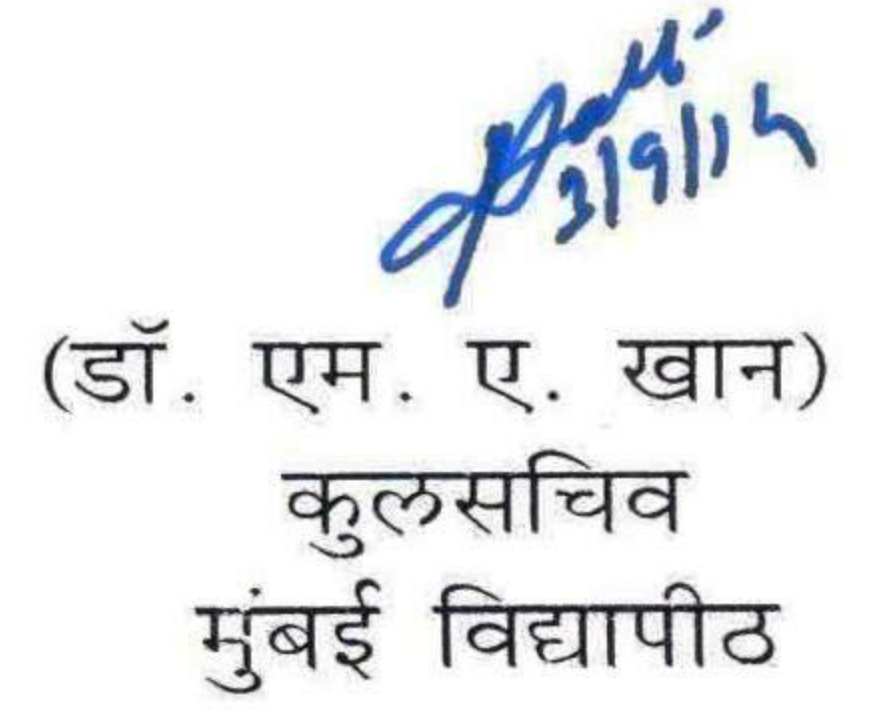 3/9/15
(डॉ. एम. ए. खान)
कुलसचिव
मुंबई विद्यापीठ